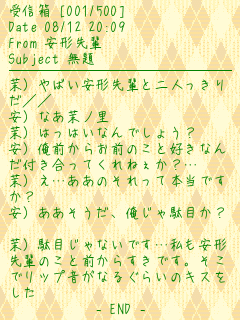 受信箱 [001/500]
Date 08/12 20:09
From 安形先輩
Subject 無題
茉) やばい安形先輩と二人っきり
だ//
安) なあ茉ノ里
茉) はっはいなんでしょう？
安) 俺前からお前のこと好きなん
だ付き合ってくれねぇか？…
茉) え…ああのそれって本当です
か？
安) ああそうだ、俺じゃ駄目か？
茉) 駄目じゃないです…私も安形
先輩のこと前からすきです。そこ
でリップ音がなるぐらいのキスを
した
- END -